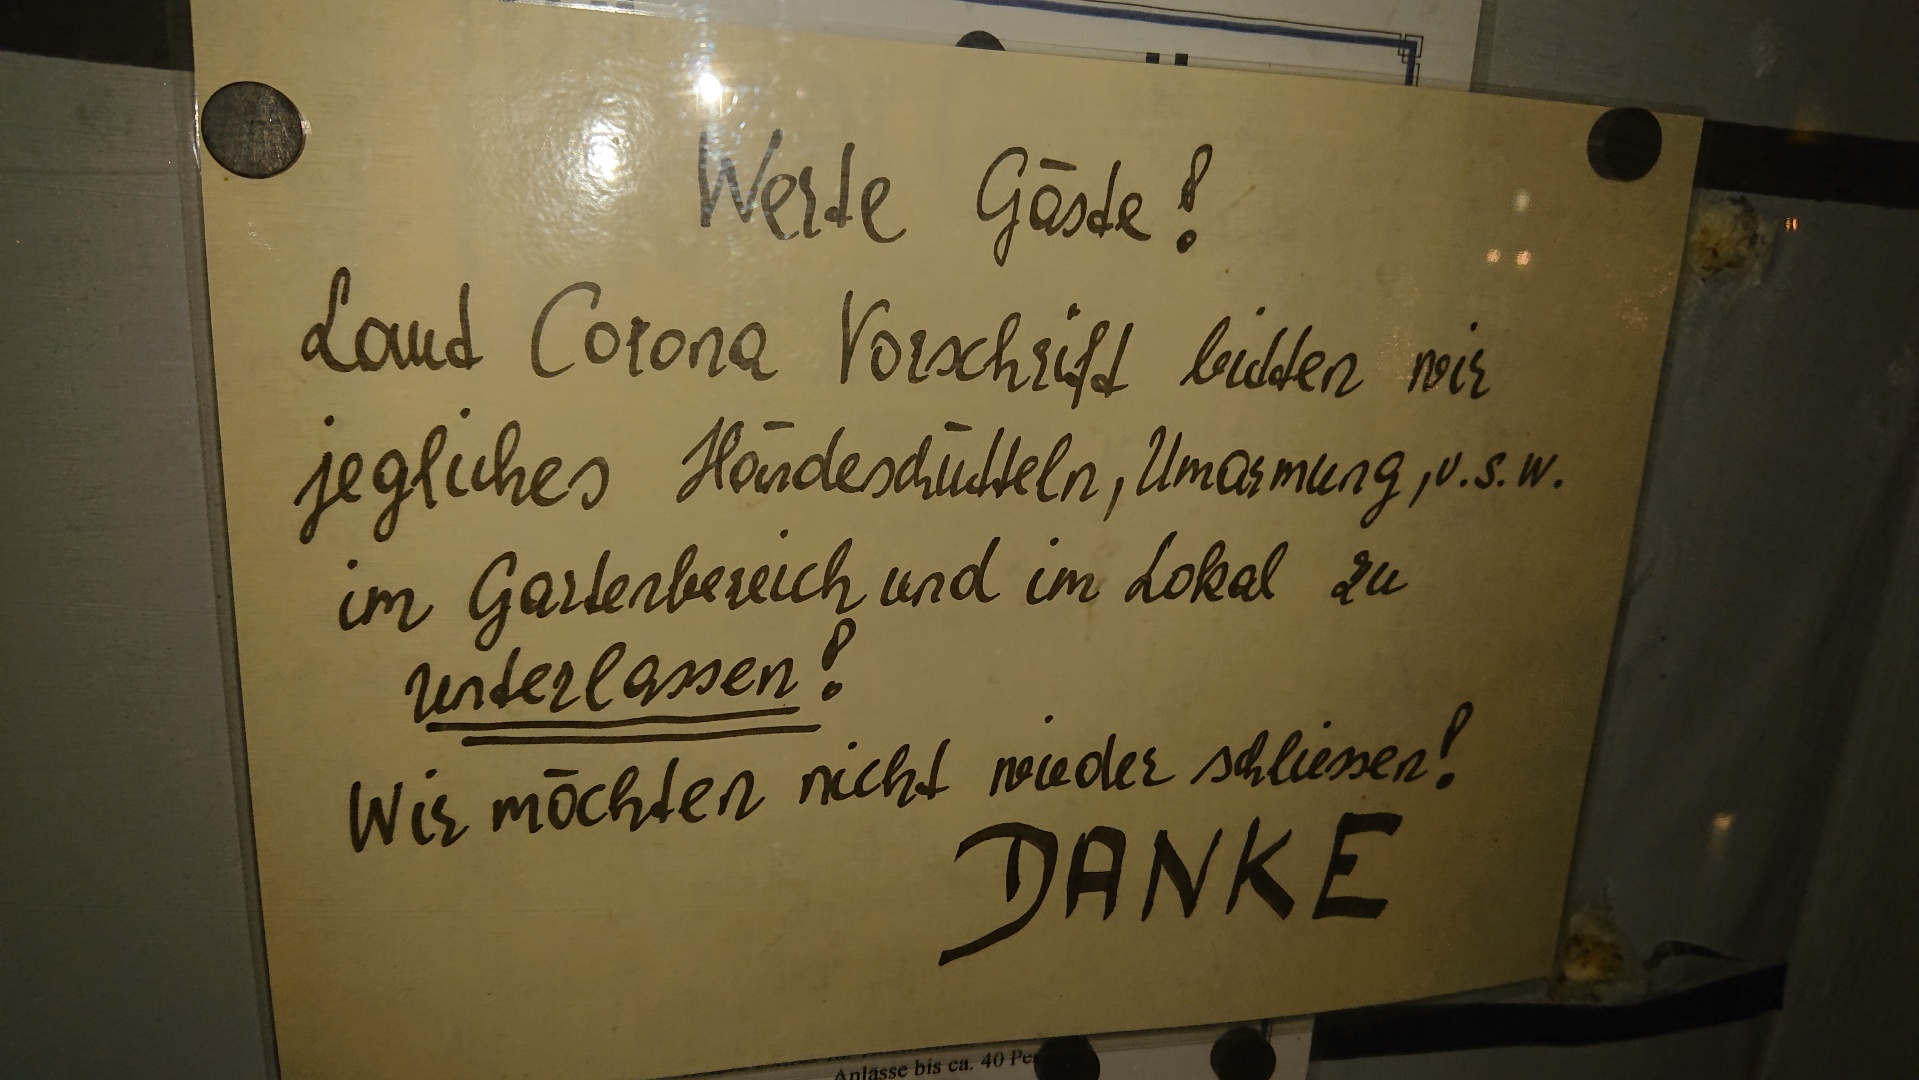 Werte Gäste!
Laut Corona Vorschrift bitten wir
jegliches Händeschütteln, Umarmung, u.s.w.
im Gartenbereich und im Lokal zu
unterlassen!
Wir möchten nicht wieder schliessen!
DANKE
Anlässe bis ca. 40